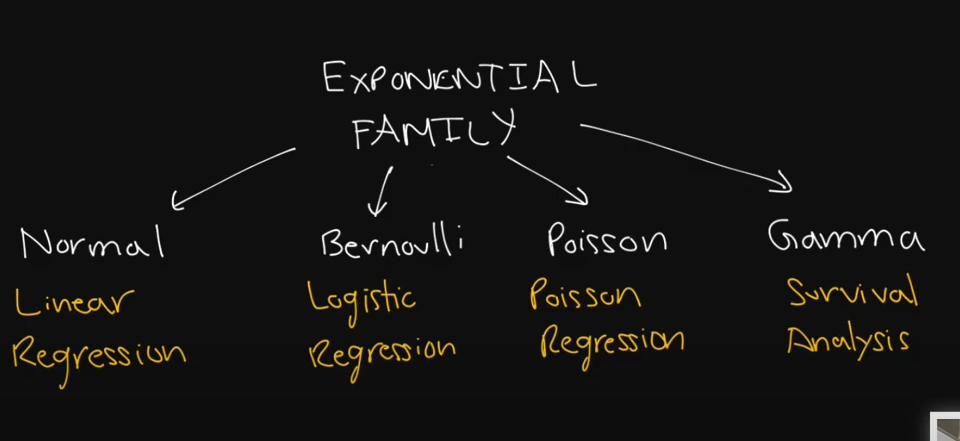 EXPONENTIAL
FAMILY
Normal
Linear
Regression
Bernoulli
Logistic
Regression
Poisson
Poisson
Regression
Gamma
Survival
Analysis